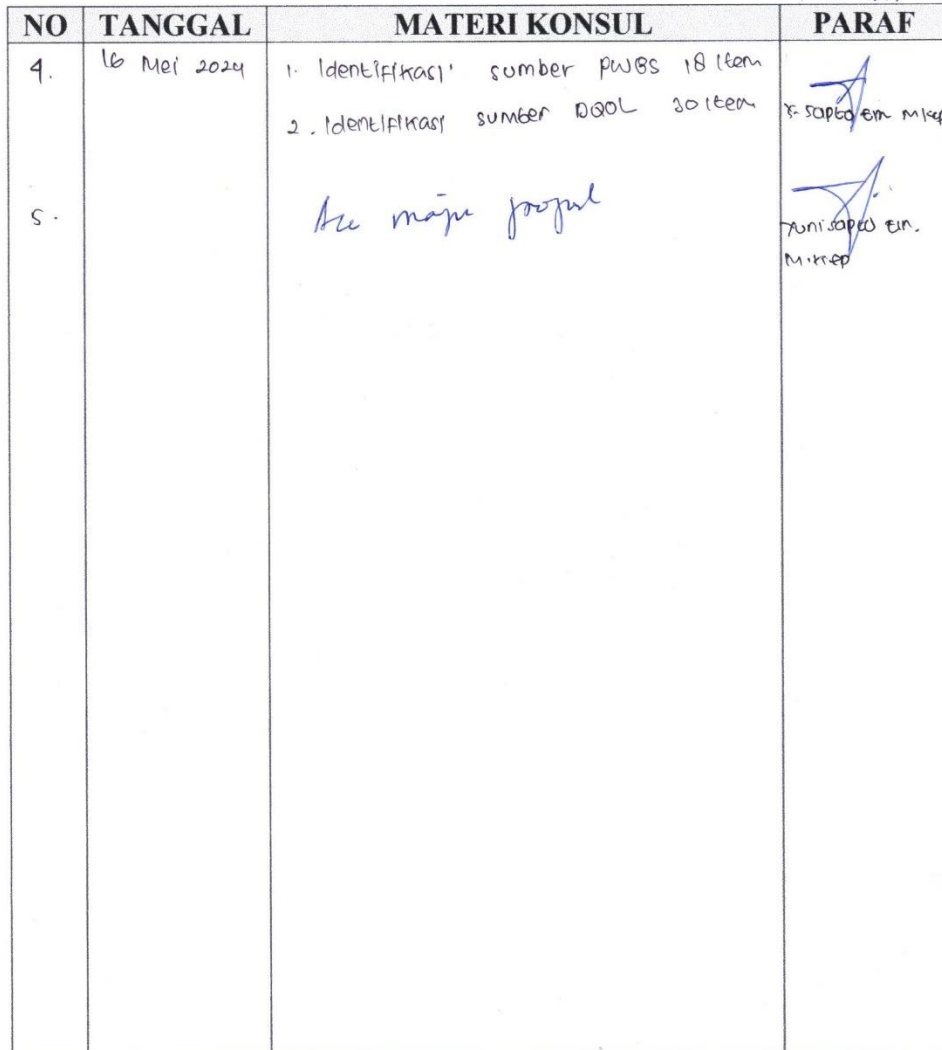 NO TANGGAL MATERI KONSUL PARAF
4. 16 Mei 2024 1. Identifikasi sumber PWBS 18 item
2. Identifikasi sumber DQOL 30 item
Y. Sapto Ern M.Kep
5. Acc maju proposal
Yuni Sapto Ern.
M.Kep